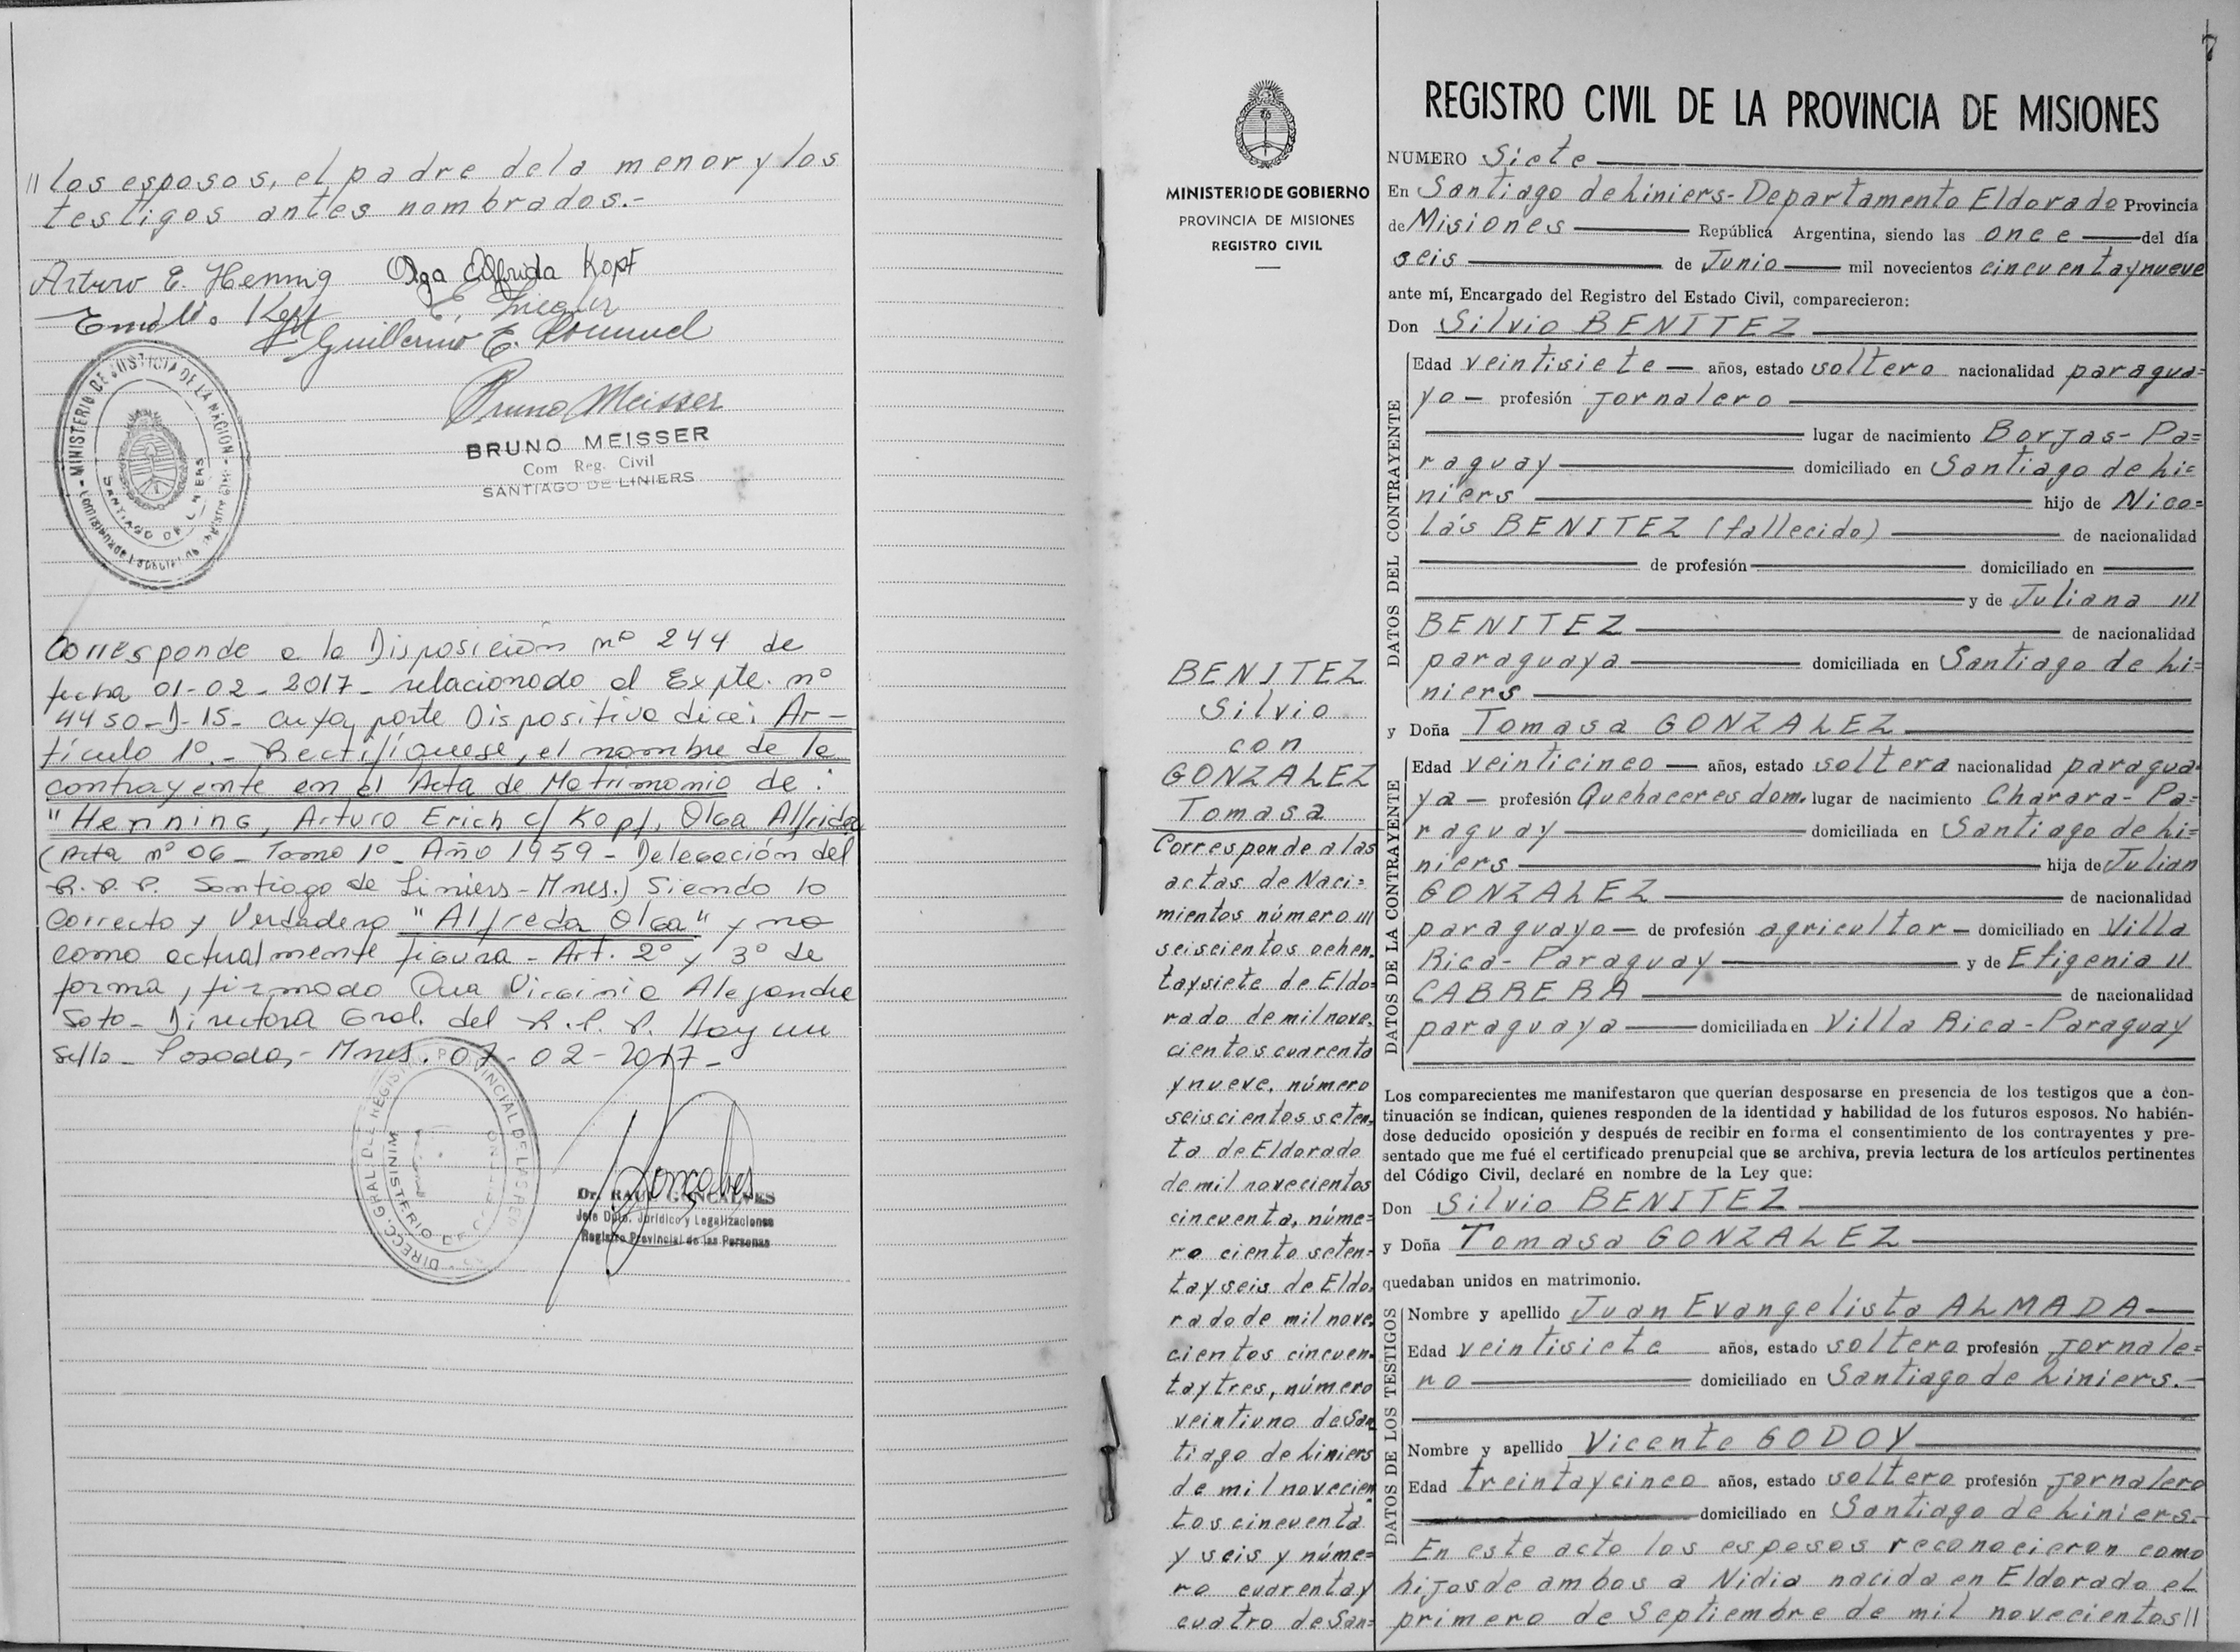 // los esposos, el padre dela menor y los
testigos antes nombrados.-
Arturo E. Hennig Olga Alfrida Kopf
Guillermo E.
Bruno Meisser
BRUNO MEISSER
Com Reg. Civil
SANTIAGO DE LINIERS
MINISTERIO DE JUSTICIA DE LA NACION
SANTIAGO DE LINIERS
Corresponde a la Disposición nº 244 de
fecha 01-02-2017- relacionado al Expte. nº
4450-D-15- cuya parte Dispositiva dice: Ar-
tículo 1º.- Rectifíquese, el nombre de la
contrayente en el Acta de Matrimonio de:
"Henning, Arturo Erich c/ Kopf, Olga Alfrida
(Acta nº 06- Tomo 1º- Año 1959- Delegación del
R.P.P. Santiago de Liniers-Mnes.) Siendo lo
correcto y Verdadero "Alfreda Olga" y no
como actualmente figura- Art. 2º y 3º de
forma, firmado Dra Virginia Alejandra
Soto- Directora Gral. del R.P.P. Hay un
sello- Posadas- Mnes. 07-02-2017-
Dr. RAUL GONCALVES
Jefe Dpto. Jurídico y Legalizaciones
Registro Provincial de las Personas
7
MINISTERIO DE GOBIERNO
PROVINCIA DE MISIONES
REGISTRO CIVIL
BENITEZ
Silvio
con
GONZALEZ
Tomasa
Corresponde a las
actas de Naci=
mientos número ///
seiscientos ochen=
taysiete de Eldo=
rado de mil nove=
cientos cuarenta
ynueve, número
seiscientos seten=
ta de Eldorado
de mil novecientos
cincuenta, núme=
ro ciento seten=
tayseis de Eldo=
rado de mil nove=
cientos cincuen=
taytres, número
veintiuno de San
tiago de Liniers
de mil novecien
tos cincuenta
y seis y núme=
ro cuarentay
cuatro de San=
REGISTRO CIVIL DE LA PROVINCIA DE MISIONES
NUMERO Siete
En Santiago de Liniers- Departamento Eldorado Provincia
de Misiones República Argentina, siendo las once del día
seis de Junio mil novecientos cincuentaynueve
ante mí, Encargado del Registro del Estado Civil, comparecieron:
Don Silvio BENITEZ
DATOS DEL CONTRAYENTE
Edad veintisiete años, estado soltero nacionalidad paragua=
yo- profesión jornalero
lugar de nacimiento Borjas- Pa=
raguay domiciliado en Santiago de Li=
niers hijo de Nico=
lás BENITEZ (fallecido) de nacionalidad
de profesión domiciliado en
y de Juliana ///
BENITEZ de nacionalidad
paraguaya domiciliada en Santiago de Li=
niers
y Doña Tomasa GONZALEZ
DATOS DE LA CONTRAYENTE
Edad veinticinco años, estado soltera nacionalidad paragua=
ya- profesión Quehaceres dom. lugar de nacimiento Charara- Pa=
raguay domiciliada en Santiago de Li=
niers hija de Julian
GONZALEZ de nacionalidad
paraguayo- de profesión agricultor- domiciliado en Villa
Rica- Paraguay y de Efigenia //
CABRERA de nacionalidad
paraguaya domiciliada en Villa Rica- Paraguay
Los comparecientes me manifestaron que querían desposarse en presencia de los testigos que a con-
tinuación se indican, quienes responden de la identidad y habilidad de los futuros esposos. No habién-
dose deducido oposición y después de recibir en forma el consentimiento de los contrayentes y pre-
sentado que me fué el certificado prenupcial que se archiva, previa lectura de los artículos pertinentes
del Código Civil, declaré en nombre de la Ley que:
Don Silvio BENITEZ
y Doña Tomasa GONZALEZ
quedaban unidos en matrimonio.
DATOS DE LOS TESTIGOS
Nombre y apellido Juan Evangelista ALMADA
Edad veintisiete años, estado soltero profesión jornale=
ro domiciliado en Santiago de Liniers.-
Nombre y apellido Vicente GODOY
Edad treintaycinco años, estado soltero profesión jornalero
domiciliado en Santiago de Liniers.-
En este acto los esposos reconocieron como
hijos de ambos a Nidia nacida en Eldorado el
primero de Septiembre de mil novecientos //